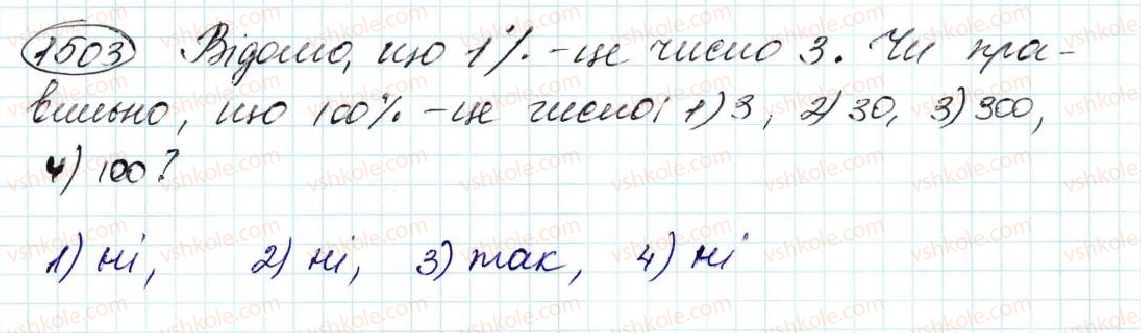 1503 Відомо, що 1% - це число 3. Чи пра-
вильно, що 100% - це число: 1) 3, 2) 30, 3) 300,
4) 100?
1) ні, 2) ні, 3) так, 4) ні